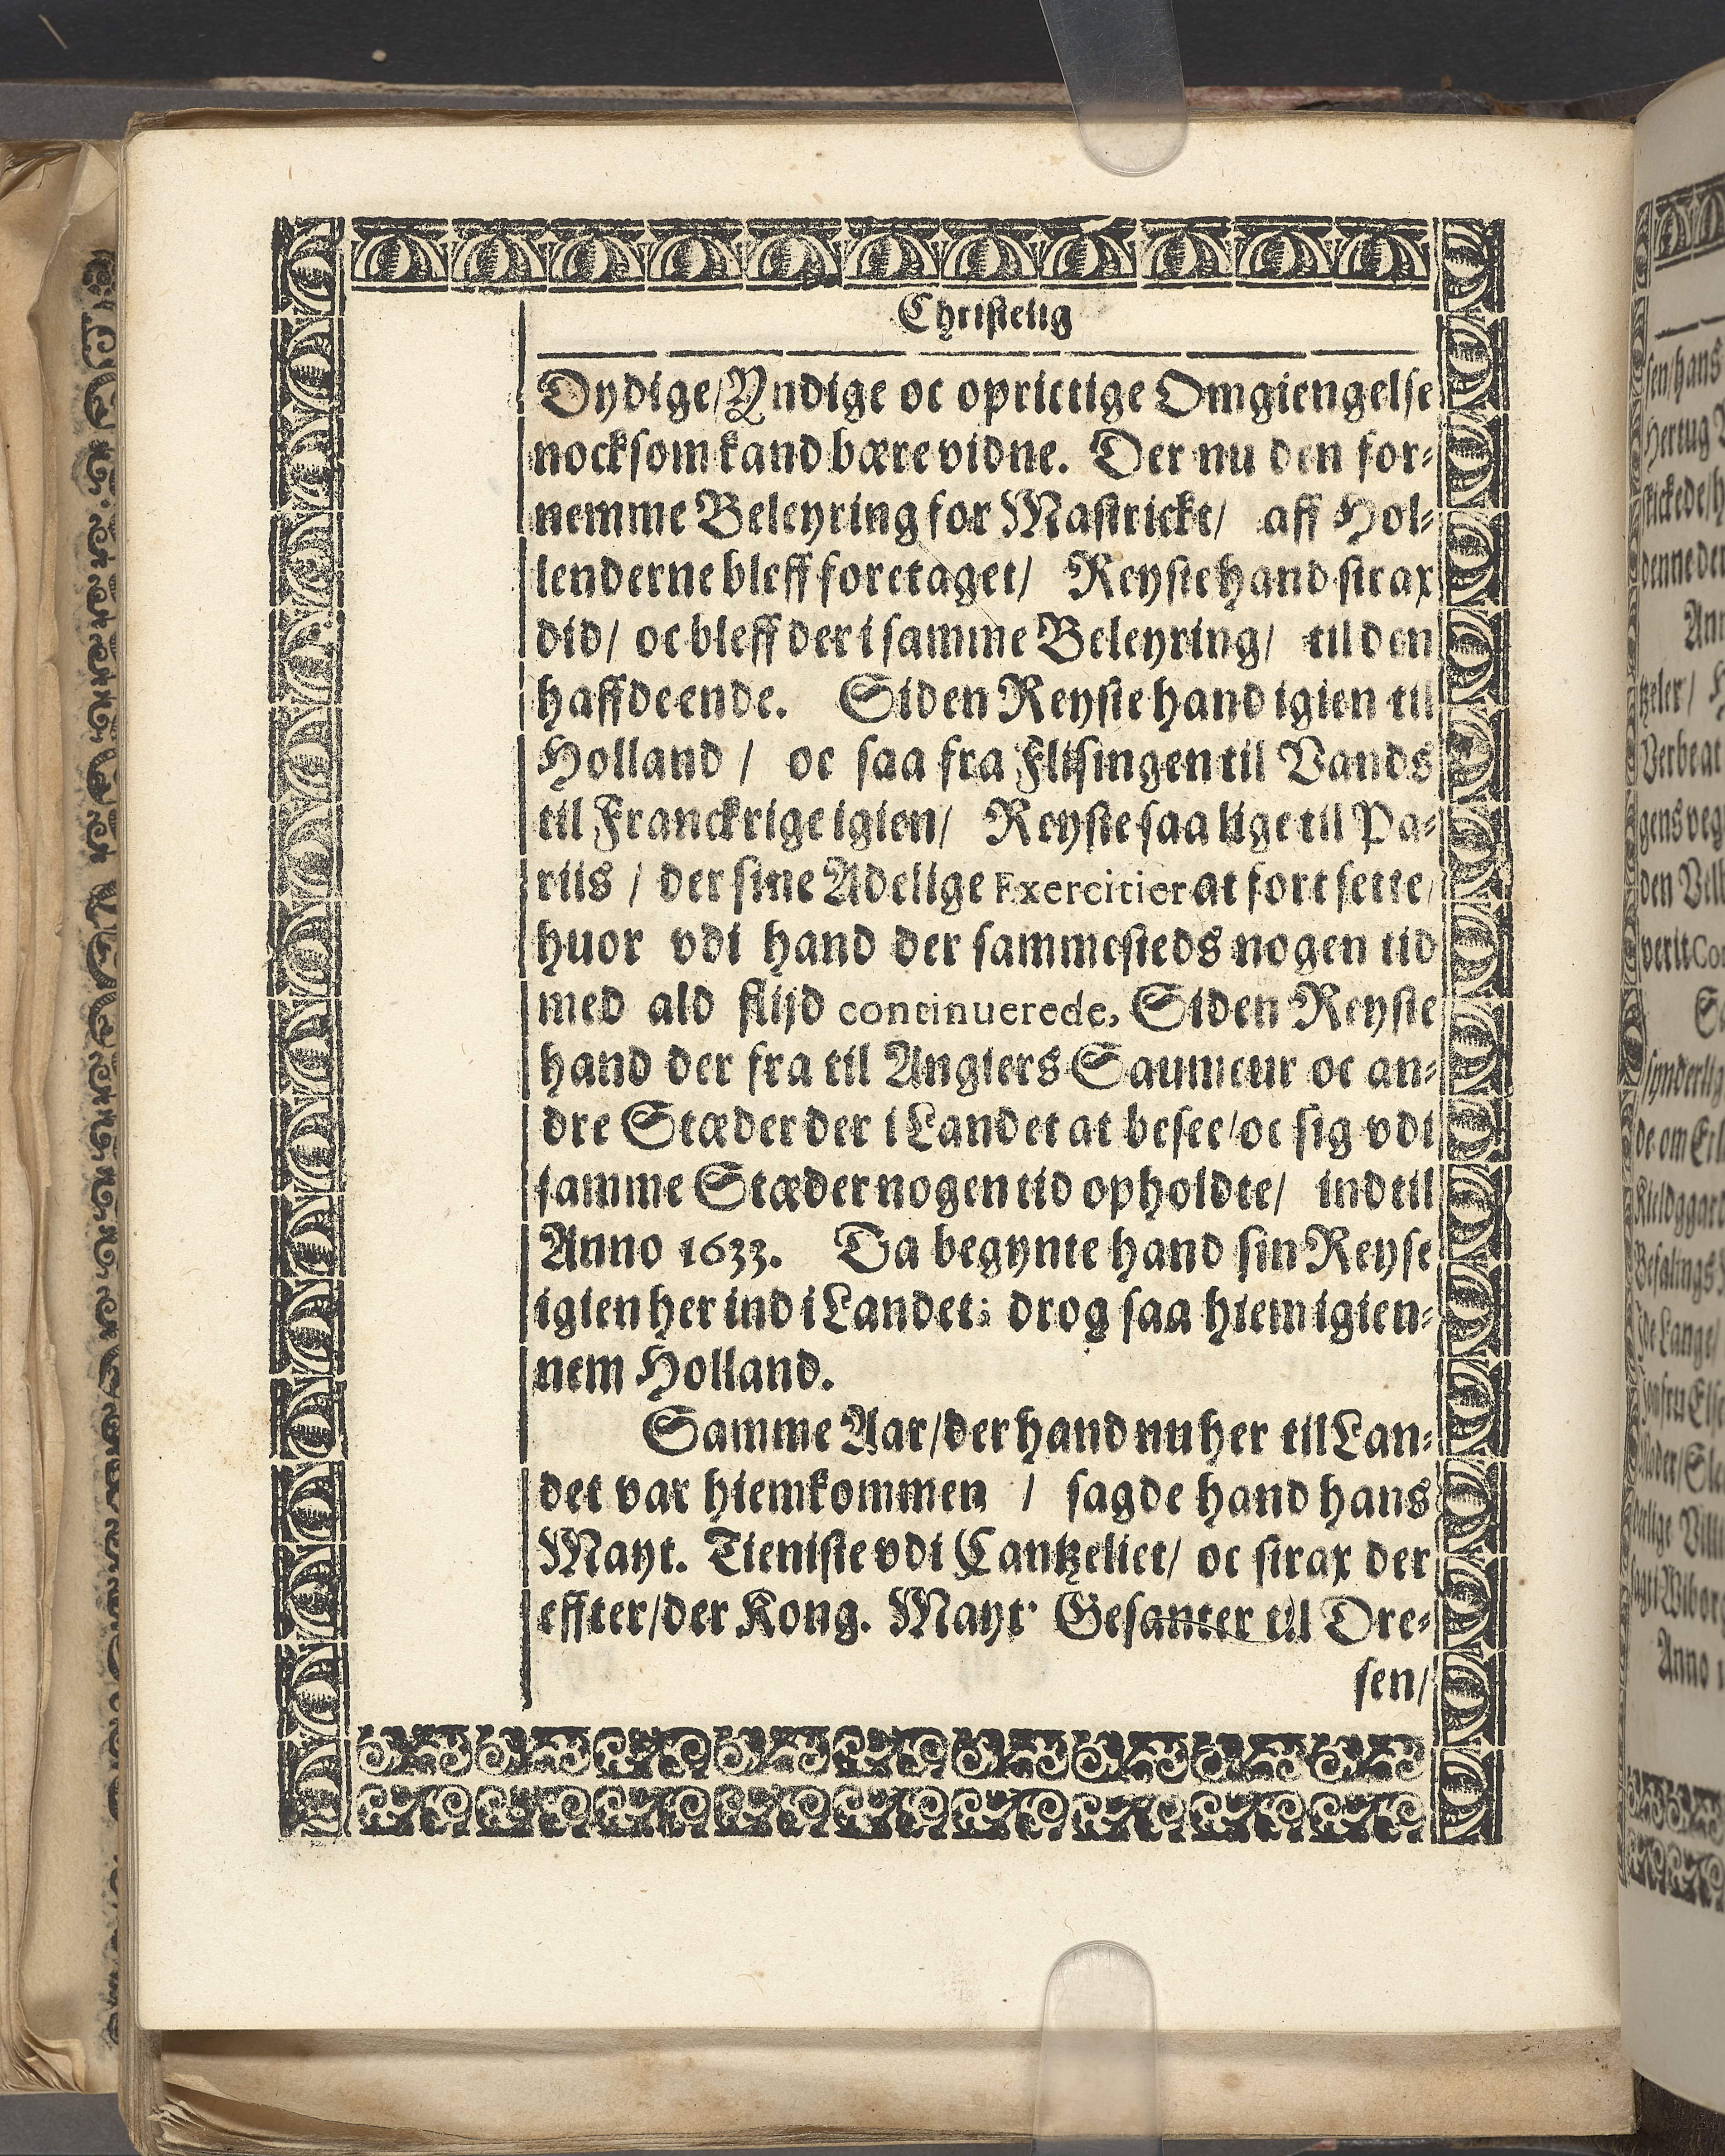 Christelig
Dydige/Yndige oc oprictige Omgiengelse
nocksom kand bære vidne. Der nu den for-
nemme Beleyring for Mastrickt/ aff Hol-
lenderne bleff foretaget/ Reyste hand strax
did/ oc bleff der i samme Beleyring/ til den
haffde ende. Siden Reyste hand igien til
Holland / oc saa fra Flisingen til Vands
til Franckrige igien/ Reyste saa lige til Pa-
riis / der sine Adelige Exercitier at fortsette/
huor vdi hand der sammesteds nogen tid
med ald flijd continuerede, Siden Reyste
hand der fra til Angiers Saumeur oc an-
dre Stæder der i Landet at besee/oc sig vdi
samme Stæder nogen tid opholdte/ indtil
Anno 1633. Da begynte hand sin Reyse
igien her ind i Landet; drog saa hiem igien-
nem Holland.
Samme Aar/der hand nu her til Lan-
det var hiemkommen / sagde hand hans
Mayt. Tieniste vdi Cantzeliet/ oc strax der
effter/der Kong. Mayt. Gesanter til Dre-
sen/